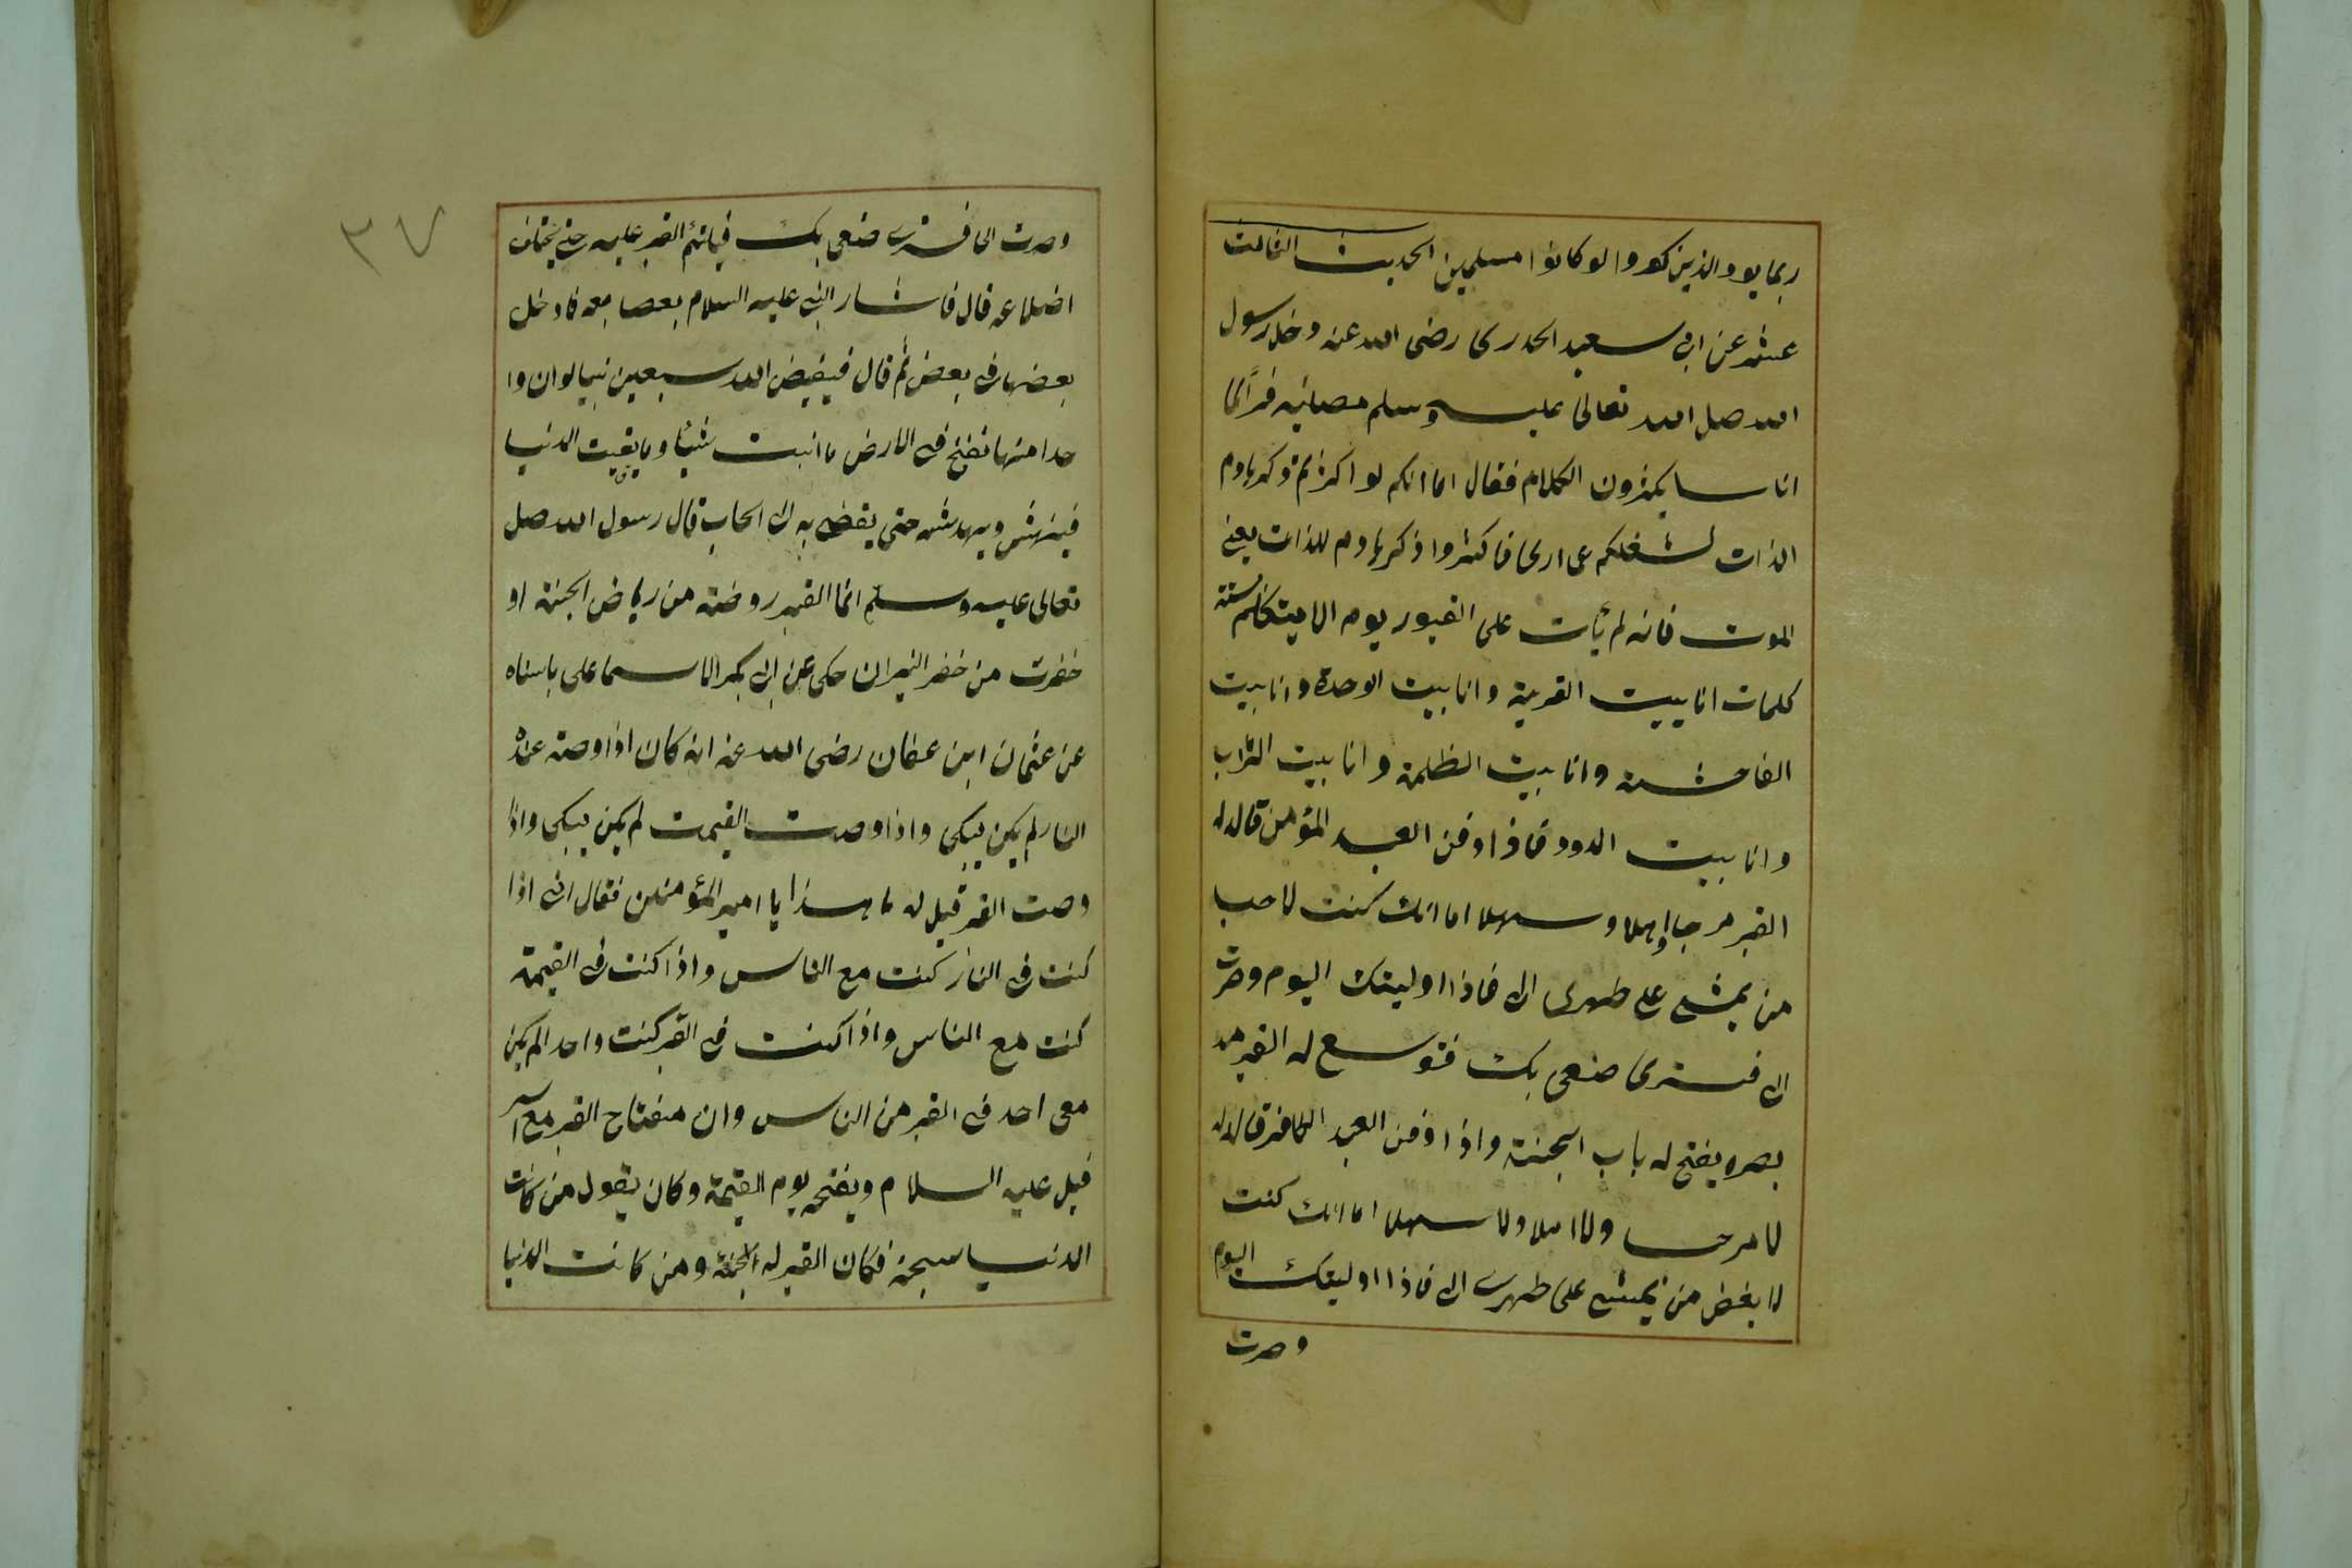 ربما يود الذين كفروا لو كانوا مسلمين الحديث الثالث
عشر عن ابى سعيد الخدرى رضى الله عنه دخل رسول
الله صلى الله تعالى عليه وسلم مصلئه فرأى
اناسا يكثرون الكلام فقال اما انكم لو اكثرتم ذكر هادم
الذات لشغلكم عما ارى فاكثروا ذكر هادم للذات يعنى
الموت فانه لم يأت على القبور يوم الا يتكلم ستة
كلمات انا بيت الغربة وانا بيت الوحدة وانا بيت
الفاحشة وانا بيت الظلمة وانا بيت التراب
وانا بيت الدود فاذا دفن العبد المؤمن قال له
القبر مرحبا واهلا وسهلا اما انك كنت لاحب
من يمشى على ظهرى الى فاذا اوليتك اليوم وصرت
الى فسترى صنعى بك فتوسع له القبر مد
بصره يفتح له باب الجنة واذا دفن العبد الكافر قال له
لا مرحبا ولا اهلا ولا سهلا اما انك كنت
لا بغض من يمشى على ظهرى الى فاذا اوليتك اليوم
وصرت
٣٧
وصرت الى فسترى صنعى بك فيلتئم القبر عليه حتى يختلف
اضلاعه قال فاشار النبى عليه السلام بعصا معه فادخل
بعضها فى بعض ثم قال فيقيض الله سبعين تنينا لو ان وا
حدا منها نفخ فى الارض ما انبت شيئا وما بقيت الدنيا
فينهش ويهدشه حتى يقضى به الى الحساب قال رسول الله صلى
تعالى عليه وسلم انما القبر روضة من رياض الجنة او
حفرت من حفر النيران حكى عن ابى بكر الاسماعلى باسناه
عن عثمان ابن عفان رضى الله عنه انه كان اذا وصت عنده
النار لم يكن يبكى واذا وصت القيمت لم يكن يبكى واذا
وصت القبر قيل له ما هذا يا امير المؤمنين فقال انى اذا
كنت فى النار كنت مع الناس واذا كنت فى القيمة
كنت مع الناس واذا كنت فى القبر كنت واحدا لم يكن
معى احد فى القبر من الناس وان مفتاح القبر مع اسر
فيل عليه السلام ويفتحه يوم القيمة وكان يقول من كانت
الدنيا سجنه فكان القبر له الجنة ومن كانت الدنيا